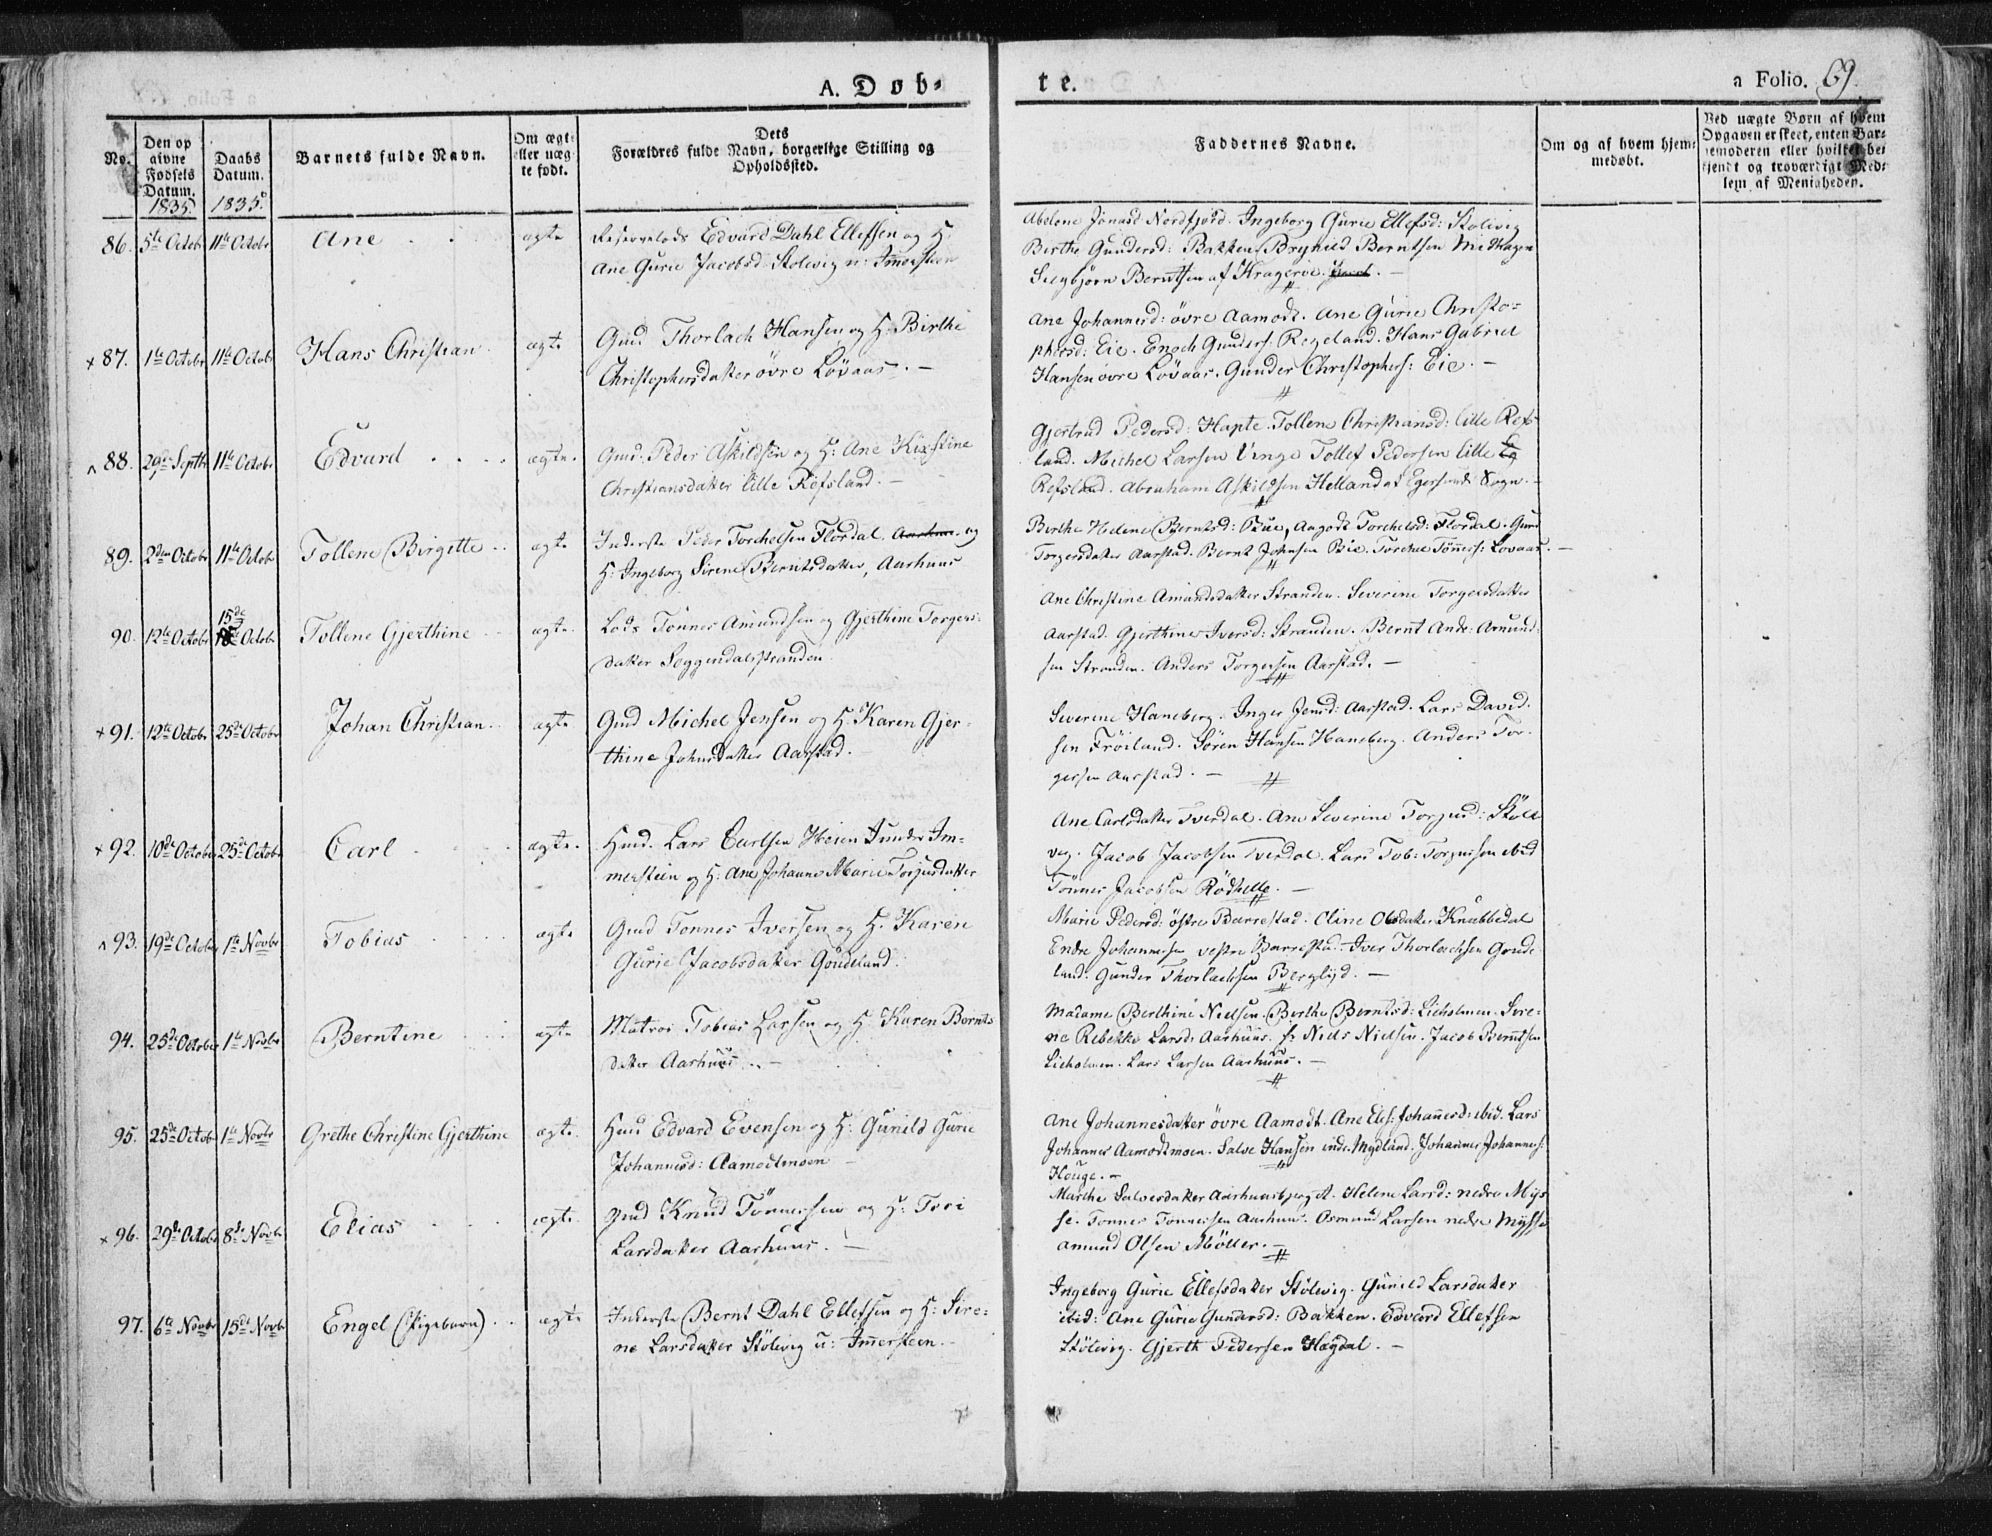 A. Døb-
te.
a Folio. 69.
No.
Den op
givne
Fødsels
Datum.
1835.
Daabs
Datum.
1835.
Barnets fulde Navn.
Om ægte
eller uæg-
te født.
Dets
Forældres fulde Navn, borgerlige Stilling og
Opholdssted.
Faddernes Navne.
Om og af hvem hjem-
medøbt.
Ved uægte Børn af hvem
Opgaven er skeet, enten Bar-
nemoderen eller hvilket be-
kjendt og troværdigt Med-
lem af Menigheden.
86. 5te Octob 11te Octobr Ane ægte Reservelods Edvard Dahl Ellefsen og H.
Ane Gurie Jacobsd Stølevig u: Immersteen
Abelone Jonasd Nordfjord. Ingeborg Gurie Ellefsd: Stølevig
Birthe Gundersd: Bakken Brynild Berntsen
Siegbjørn Berntsen af Kragerøe.
87. 1te Octobr 11te Octobr Hans Christian ægte Gmd Thorlach Hansen og H: Birthe
Christophersdatter øvre Løvaas. —
Ane Johannesd: øvre Aamodt. Ane Gurie Christo-
phersd: Eie. Enoch Gunders: Regeland. Hans Gabriel
Hansen øvre Løvaas. Gunder Christophers: Eie. —
88. 29de Septbr 11te Octobr Edvard ægte. Gmd. Peder Askildsen og H: Ane Kirstine
Christiansdatter lille Refsland. —
Gjertrud Pedersd: Hapte. Tollene Christiansd: lille Refs-
land. Michel Larsen Vinge Tollef Pedersen lille
Refsland. Abraham Askildsen Helland af Egersunds Sogn. —
89. 2den Octobr 11te Octobr Tollene Birgitte ægte Inderste Peder Torchelsen Flordal og
H: Ingeborg Sirene Berntsdatter, Aarhuus
Birthe Helene Berntsd: Bue, Aagodt Torchelsd: Flordal.
Torgersdatter Aarstad. Bernt Johnsen Bie. Torchel Tønness: Lovaas. —
90. 12te Octobr 15de Octobr Tollene Gjerthine ægte. Lods Tønnes Amundsen og Gjerthine Torgers-
datter Soggendalsstranden
Ane Christine Amundsdatter Stranden. Severine Torgersdatter
Aarstad. Gjerthine Iversd: Stranden. Bernt Andr: Amund-
sen Stranden. Anders Torgersen Aarstad. —
91. 12te Octobr 25de Octobr Johan Christian ægte Gmd Michel Jensen og H: Karen Gjer-
thine Johnsdatter Aarstad.
Severine Haneberg. Inger Jensd: Aarstad. Lars David-
sen Frøiland. Søren Hansen Haneberg. Anders Tor-
gersen Aarstad. —
92. 10de October 25de Octobr Carl ægte. Hmd. Lars Carlsen Under Im-
mersteen og H: Ane Johanne Marie Torjusdatter
Ane Carlsdatter Tverdal. Ane Severine Torjusd: Støle
vig. Jacob Jacobsen Tverdal. Lars Tob: Torjussen ibid
Tønnes Jacobsen Rødhelle. —
93. 19de October 1te Novbr Tobias ægte Gmd Tønnes Iversen og H. Karen
Gurie Jacobsdatter Goudeland.
Marie Pedersd: østre Barrestad. Oline Olsdatter Knubbedal
Endre Johannesen vestre Barrestad. Iver Thorlachsen Goude
land. Gunder Thorlachsen Berglyd. —
94. 25de October 1te Novbr Berntine ægte Matros Tobias Larsen og H. Karen Bernts
datter Aarhuus. —
Madame Berthine Nielsen. Birthe Berntsd: Lieholmen. Sire-
ne Rebekke Larsd: Aarhuus. Hr Niels Nielsen. Jacob Berntsen
Lieholmen. Lars Larsen Aarhuus. —
95. 25de Octobr 1te Novbr Grethe Christine Gjerthine ægte. Hmd Edvard Evensen og H: Gunild Gurie
Johannesd: Aamodtmoen —
Ane Johannesdatter øvre Aamodt. Ane Elis: Johannesd: ibid. Lars
Johannes Aamodtmoen. Salve Hansen inds. Mydland. Johannes Johanness:
Houge. —
96. 29de Octobr 8de Novbr Elias ægte. Gmd Knud Tønnessen og H: Tori
Larsdatter Aarhuus. —
Marthe Salvesdatter Aarhuusbjerget. Helene Larsd: nedre Mys
se. Tønnes Tønnessen Aarhuus. Osmund Larsen nedre Mysse
Amund Olsen Møller. —
97. 6te Novbr 15de Novbr Engel (Pigebarn) ægte Inderste Bernt Dahl Ellefsen og H: Sire-
ne Larsdatter Stølevig u: Immersteen. —
Ingeborg Gurie Ellefsdatter Stølevig. Gunild Larsdatter
ibid: Ane Gurie Gundersd: Bakken. Edvard Ellefsen
Stølevig. Gjerth Pedersen Hægdal. —